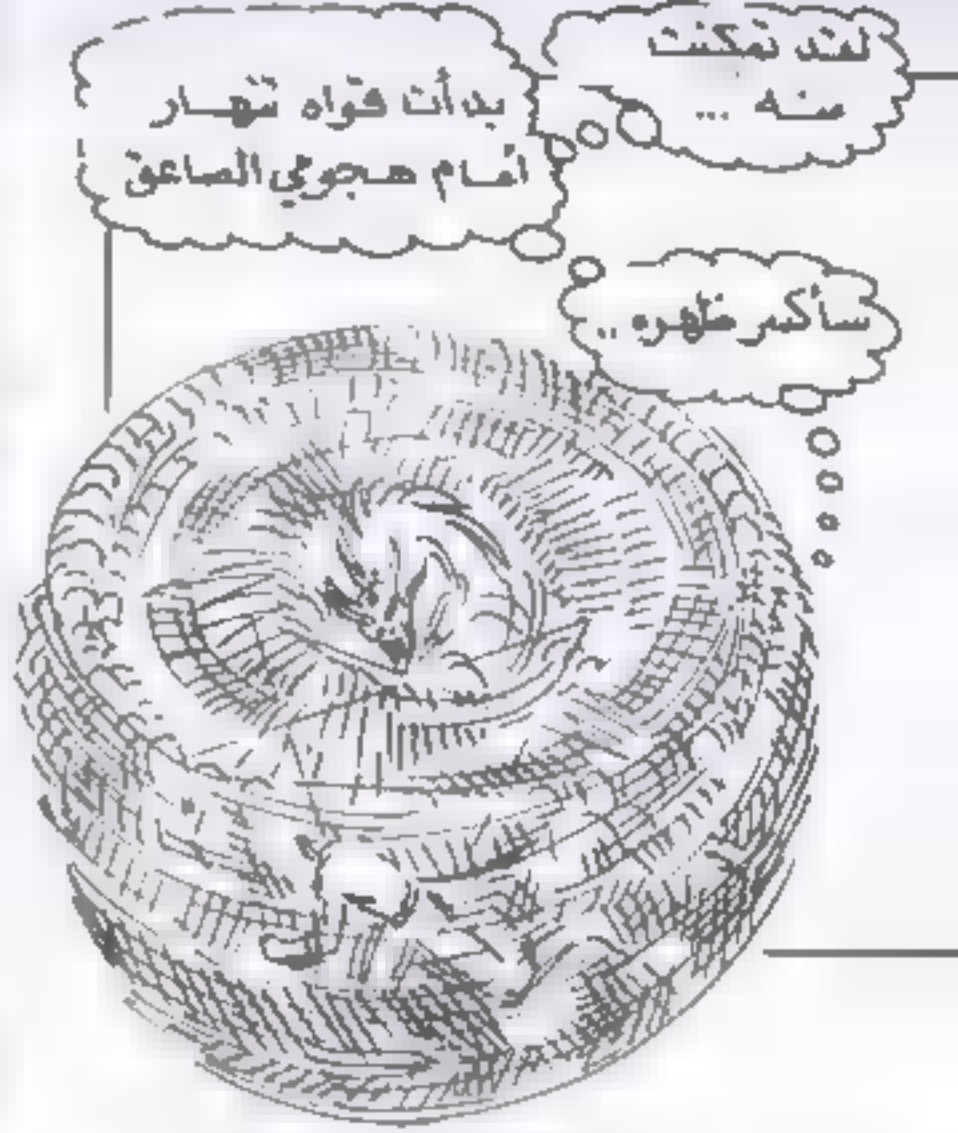 لقد تمكنت
منه ...
بدأت قواه تنهار
أمام هجومي الصاعق
سأكسر ظهره ..